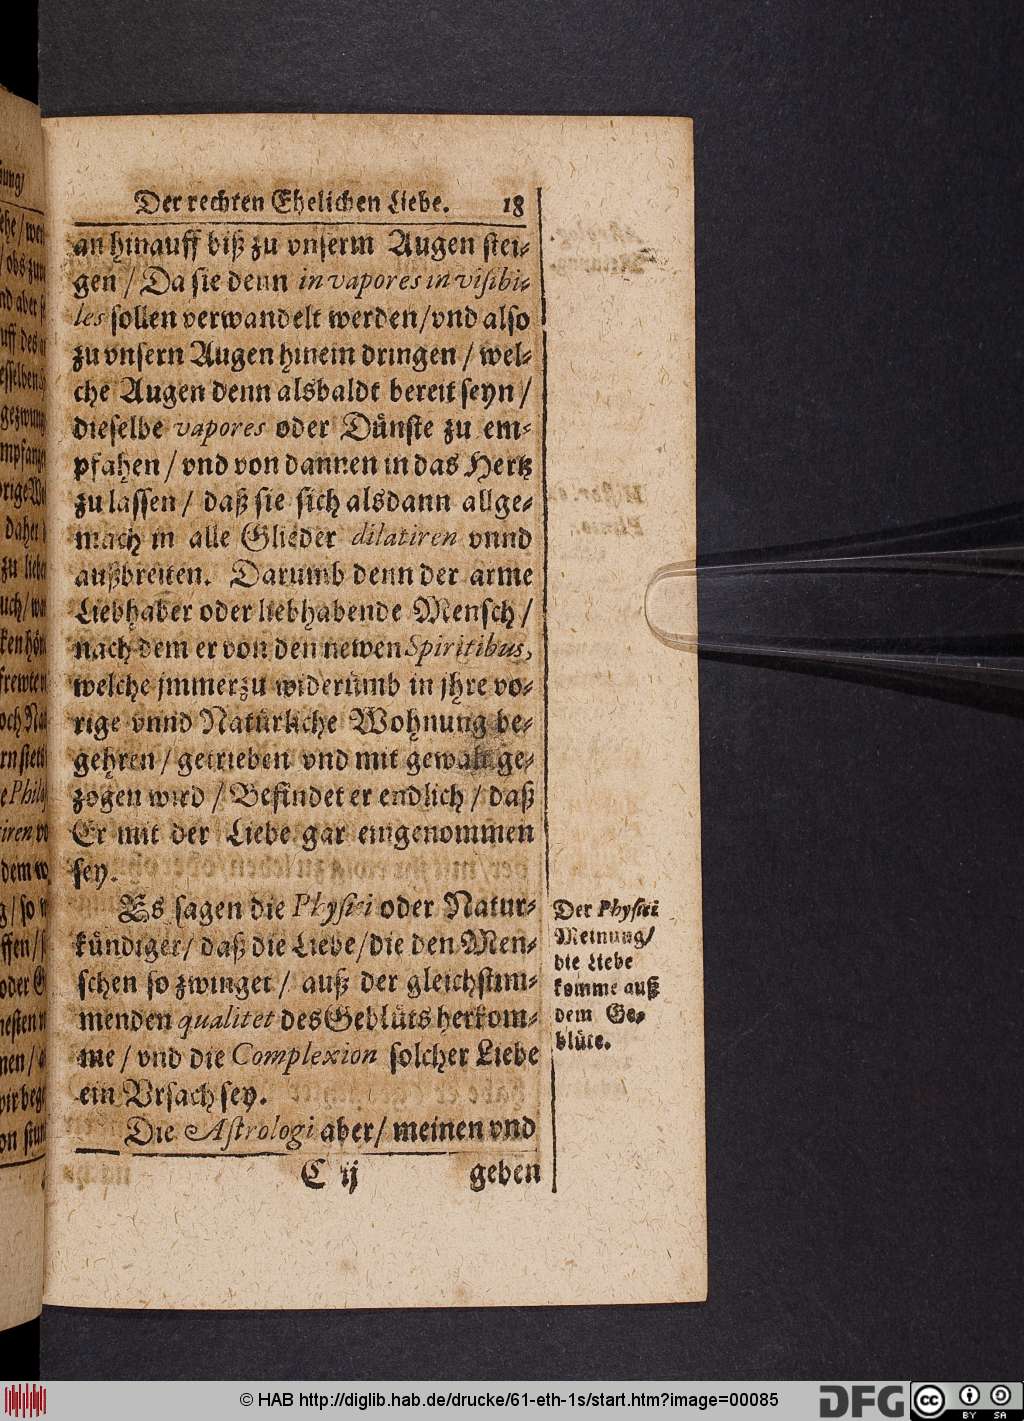 Der rechten Ehelichen Liebe. 18
an hinauff biß zu vnserm Augen stei-
gen / Da sie denn in vapores invisibi-
les sollen verwandelt werden/vnd also
zu vnsern Augen hinein dringen / wel-
che Augen denn alsbaldt bereit seyn /
dieselbe vapores oder Dünste zu em-
pfahen / vnd von dannen in das Hertz
zu lassen / daß sie sich alsdann allge-
mach in alle Glieder dilatiren vnnd
außbreiten. Darumb denn der arme
Liebhaber oder liebhabende Mensch /
nach dem er von den newen Spiritibus,
welche jmmerzu widerümb in jhre vo-
rige vnnd Natürliche Wohnung be-
gehren / getrieben vnd mit gewalt ge-
zogen wird / Befindet er endlich / daß
Er mit der Liebe gar eingenommen
sey.
Es sagen die Physici oder Natur-
kündiger / daß die Liebe / die den Men-
schen so zwinget / auß der gleichstim-
menden qualitet des Geblüts herkom-
me / vnd die Complexion solcher Liebe
ein Vrsach sey.
Die Astrologi aber / meinen vnd
C ij geben
Der Physici
Meinung/
die Liebe
komme auß
dem Ge-
blüte.
© HAB http://diglib.hab.de/drucke/61-eth-1s/start.htm?image=00085
DFG
cc
BY SA